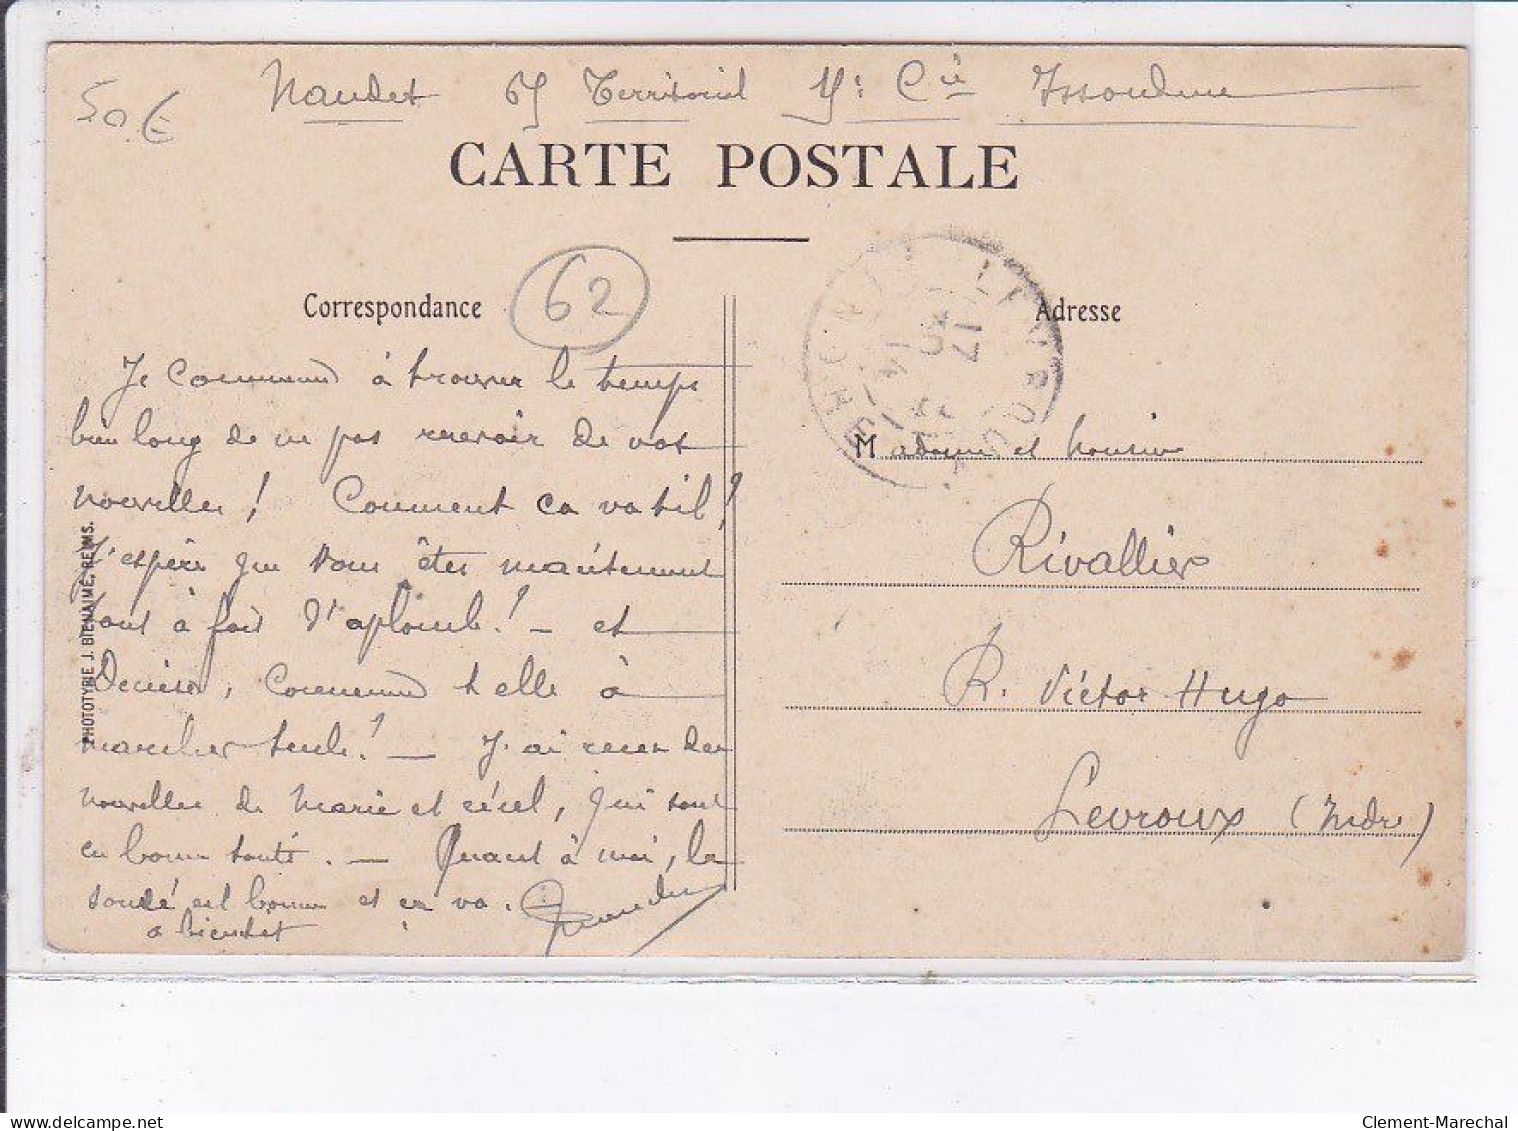 50 €
Naudet 65 Territorial Cie Issoudun
CARTE POSTALE
62
Correspondance
Adresse
Je commence à trouver le temps
bien long de ne pas recevoir de vos
nouvelles ! Comment ça va til ?
J'espère que vous êtes maintenant
tout à fait d'aplomb ! — et
Denise, commence t elle à
marcher seule ? — J'ai recu des
nouvelles de Marie et Cécel, qui sont
en bonne santé. — Quant à moi, la
santé est bonne et ça va. Naudet
a bientôt
Madame et Monsieur
Rivallier
R. Victor Hugo
Levroux (Indre)
PHOTOTYPIE J. BIENAIMÉ, REIMS.
LEVROUX
17
14
Clement-Marechal